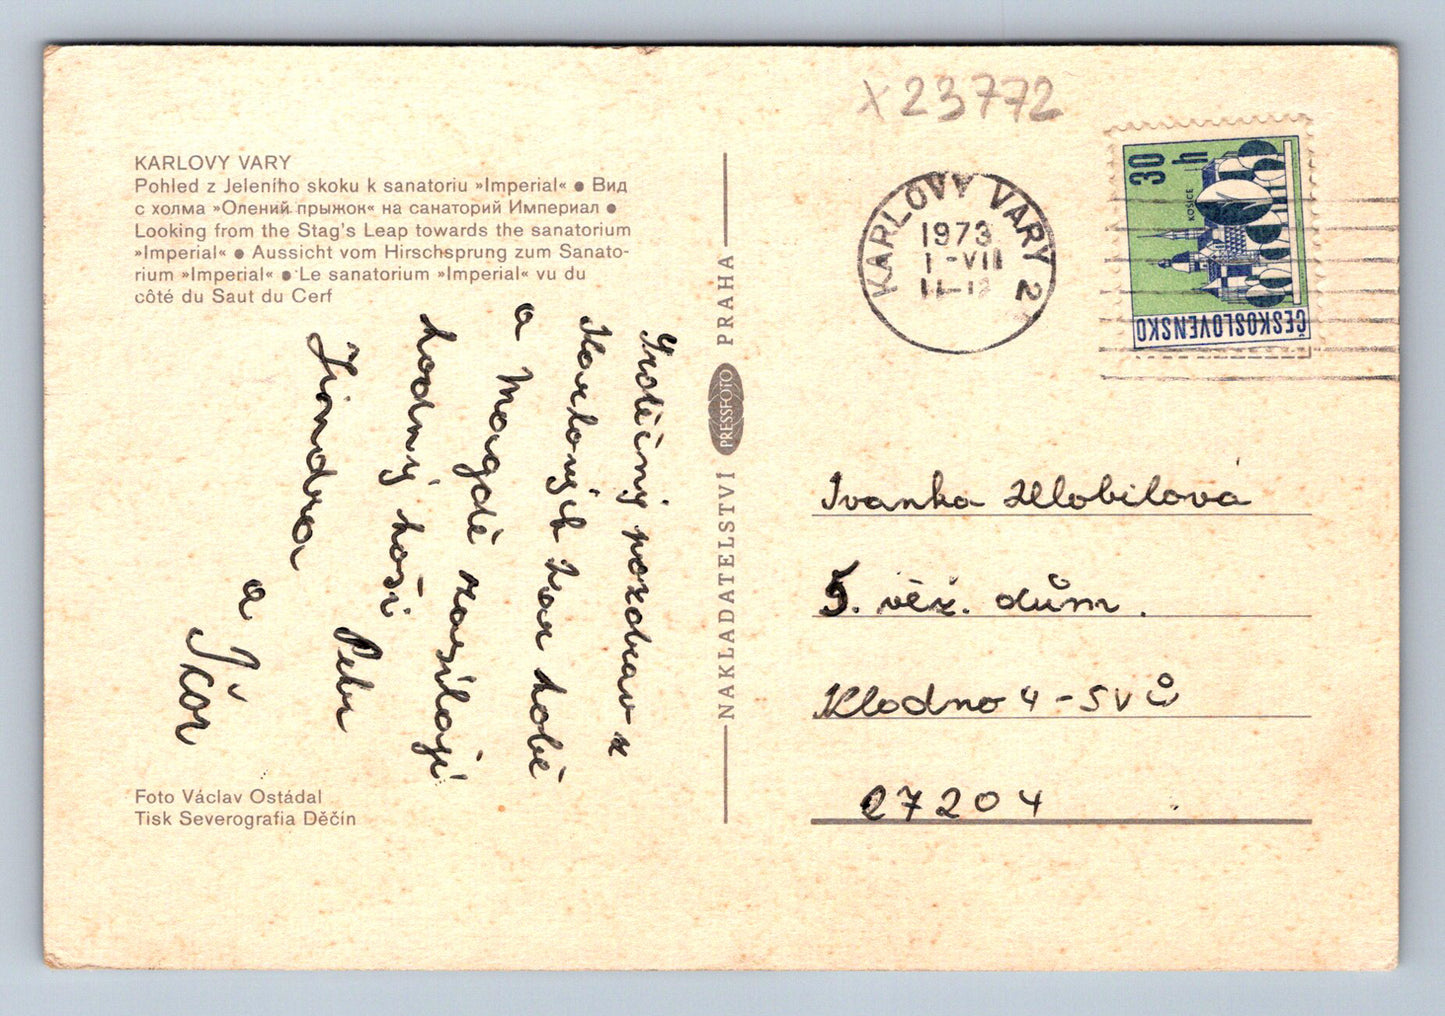 x 23772
KARLOVY VARY
Pohled z Jeleního skoku k sanatoriu »Imperial« ● Вид
с холма »Олений прыжок« на санаторий Империал ●
Looking from the Stag's Leap towards the sanatorium
»Imperial« ● Aussicht vom Hirschsprung zum Sanato-
rium »Imperial« ● Le sanatorium »Imperial« vu du
côté du Saut du Cerf
Srdečný pozdrav z
Karlových Var tobě
a Magdě zasílají
hodný hoši Petr
Jindra
a Igor
Foto Václav Ostádal
Tisk Severografia Děčín
NAKLADATELSTVÍ PRESSFOTO PRAHA
KARLOVY VARY 2
1973
-VII
30 h
KOŠICE
ČESKOSLOVENSKO
Ivanka Hlobilová
5. věž. dům.
Kladno 4 - SVŮ
27204